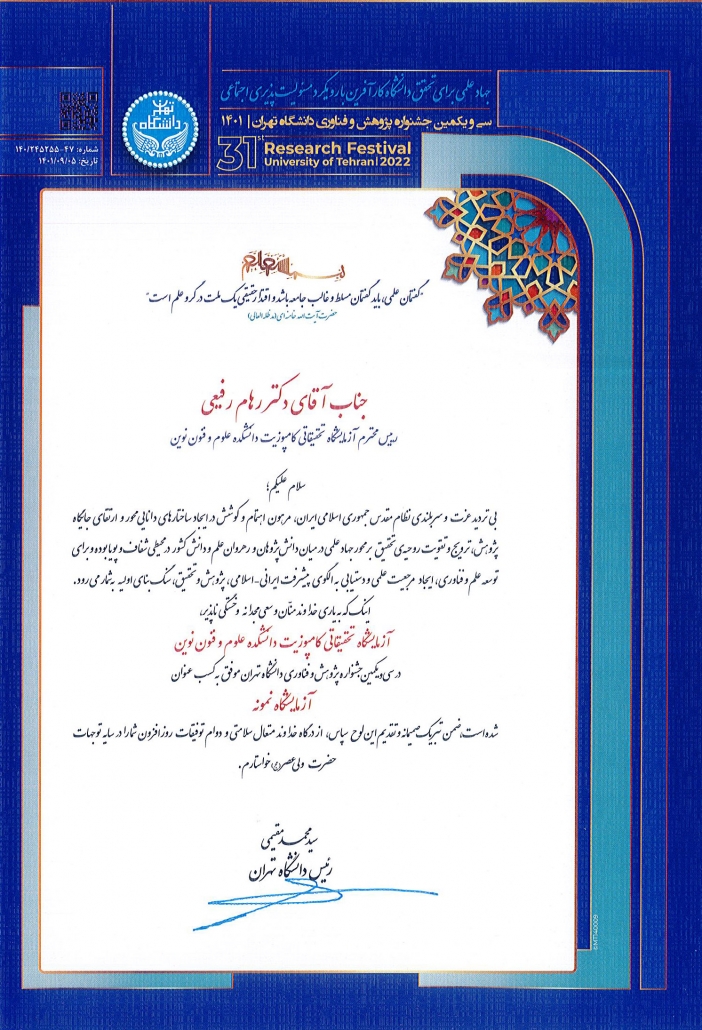 جهاد علمی برای تحقق دانشگاه کارآفرین با رویکرد مسئولیت‌پذیری اجتماعی
سی و یکمین جشنواره پژوهش و فناوری دانشگاه تهران | ۱۴۰۱
31st Research Festival
University of Tehran | 2022
دانشگاه تهران
شماره: ۱۴۰/۲۴۵۲۵۵۰۴۷
تاریخ: ۱۴۰۱/۰۹/۰۵
"گفتمان علمی، باید گفتمان مسلط و غالب جامعه باشد و اقتدار حقیقی یک ملت در گرو علم است"
حضرت آیت الله خامنه ای (مدظله العالی)
جناب آقای دکتر رهام رفیعی
رییس محترم آزمایشگاه تحقیقاتی کامپوزیت دانشکده علوم و فنون نوین
سلام علیکم؛
بی تردید عزت و سربلندی نظام مقدس جمهوری اسلامی ایران، مرهون اهتمام و کوشش در ایجاد ساختارهای دانایی محور و ارتقای جایگاه
پژوهش، ترویج و تقویت روحیه‌ی تحقیق بر محور جهاد علمی در میان دانش پژوهان و رهروان علم و دانش کشور در محیطی شفاف و پویا بوده و برای
توسعه علم و فناوری، ایجاد مرجعیت علمی و دستیابی به الگوی پیشرفت ایرانی-اسلامی، پژوهش و تحقیق، سنگ بنای اولیه به شمار می رود.
اینک که به یاری خداوند منّان و سعی مجدانه و خستگی ناپذیر،
آزمایشگاه تحقیقاتی کامپوزیت دانشکده علوم و فنون نوین
در سی و یکمین جشنواره پژوهش و فناوری دانشگاه تهران موفق به کسب عنوان
آزمایشگاه نمونه
شده است، ضمن تبریک صمیمانه و تقدیم این لوح سپاس، از درگاه خداوند متعال سلامتی و دوام توفیقات روزافزون شما را در سایه توجهات
حضرت ولی عصر(عج) خواستارم.
سید محمد مقیمی
رئیس دانشگاه تهران